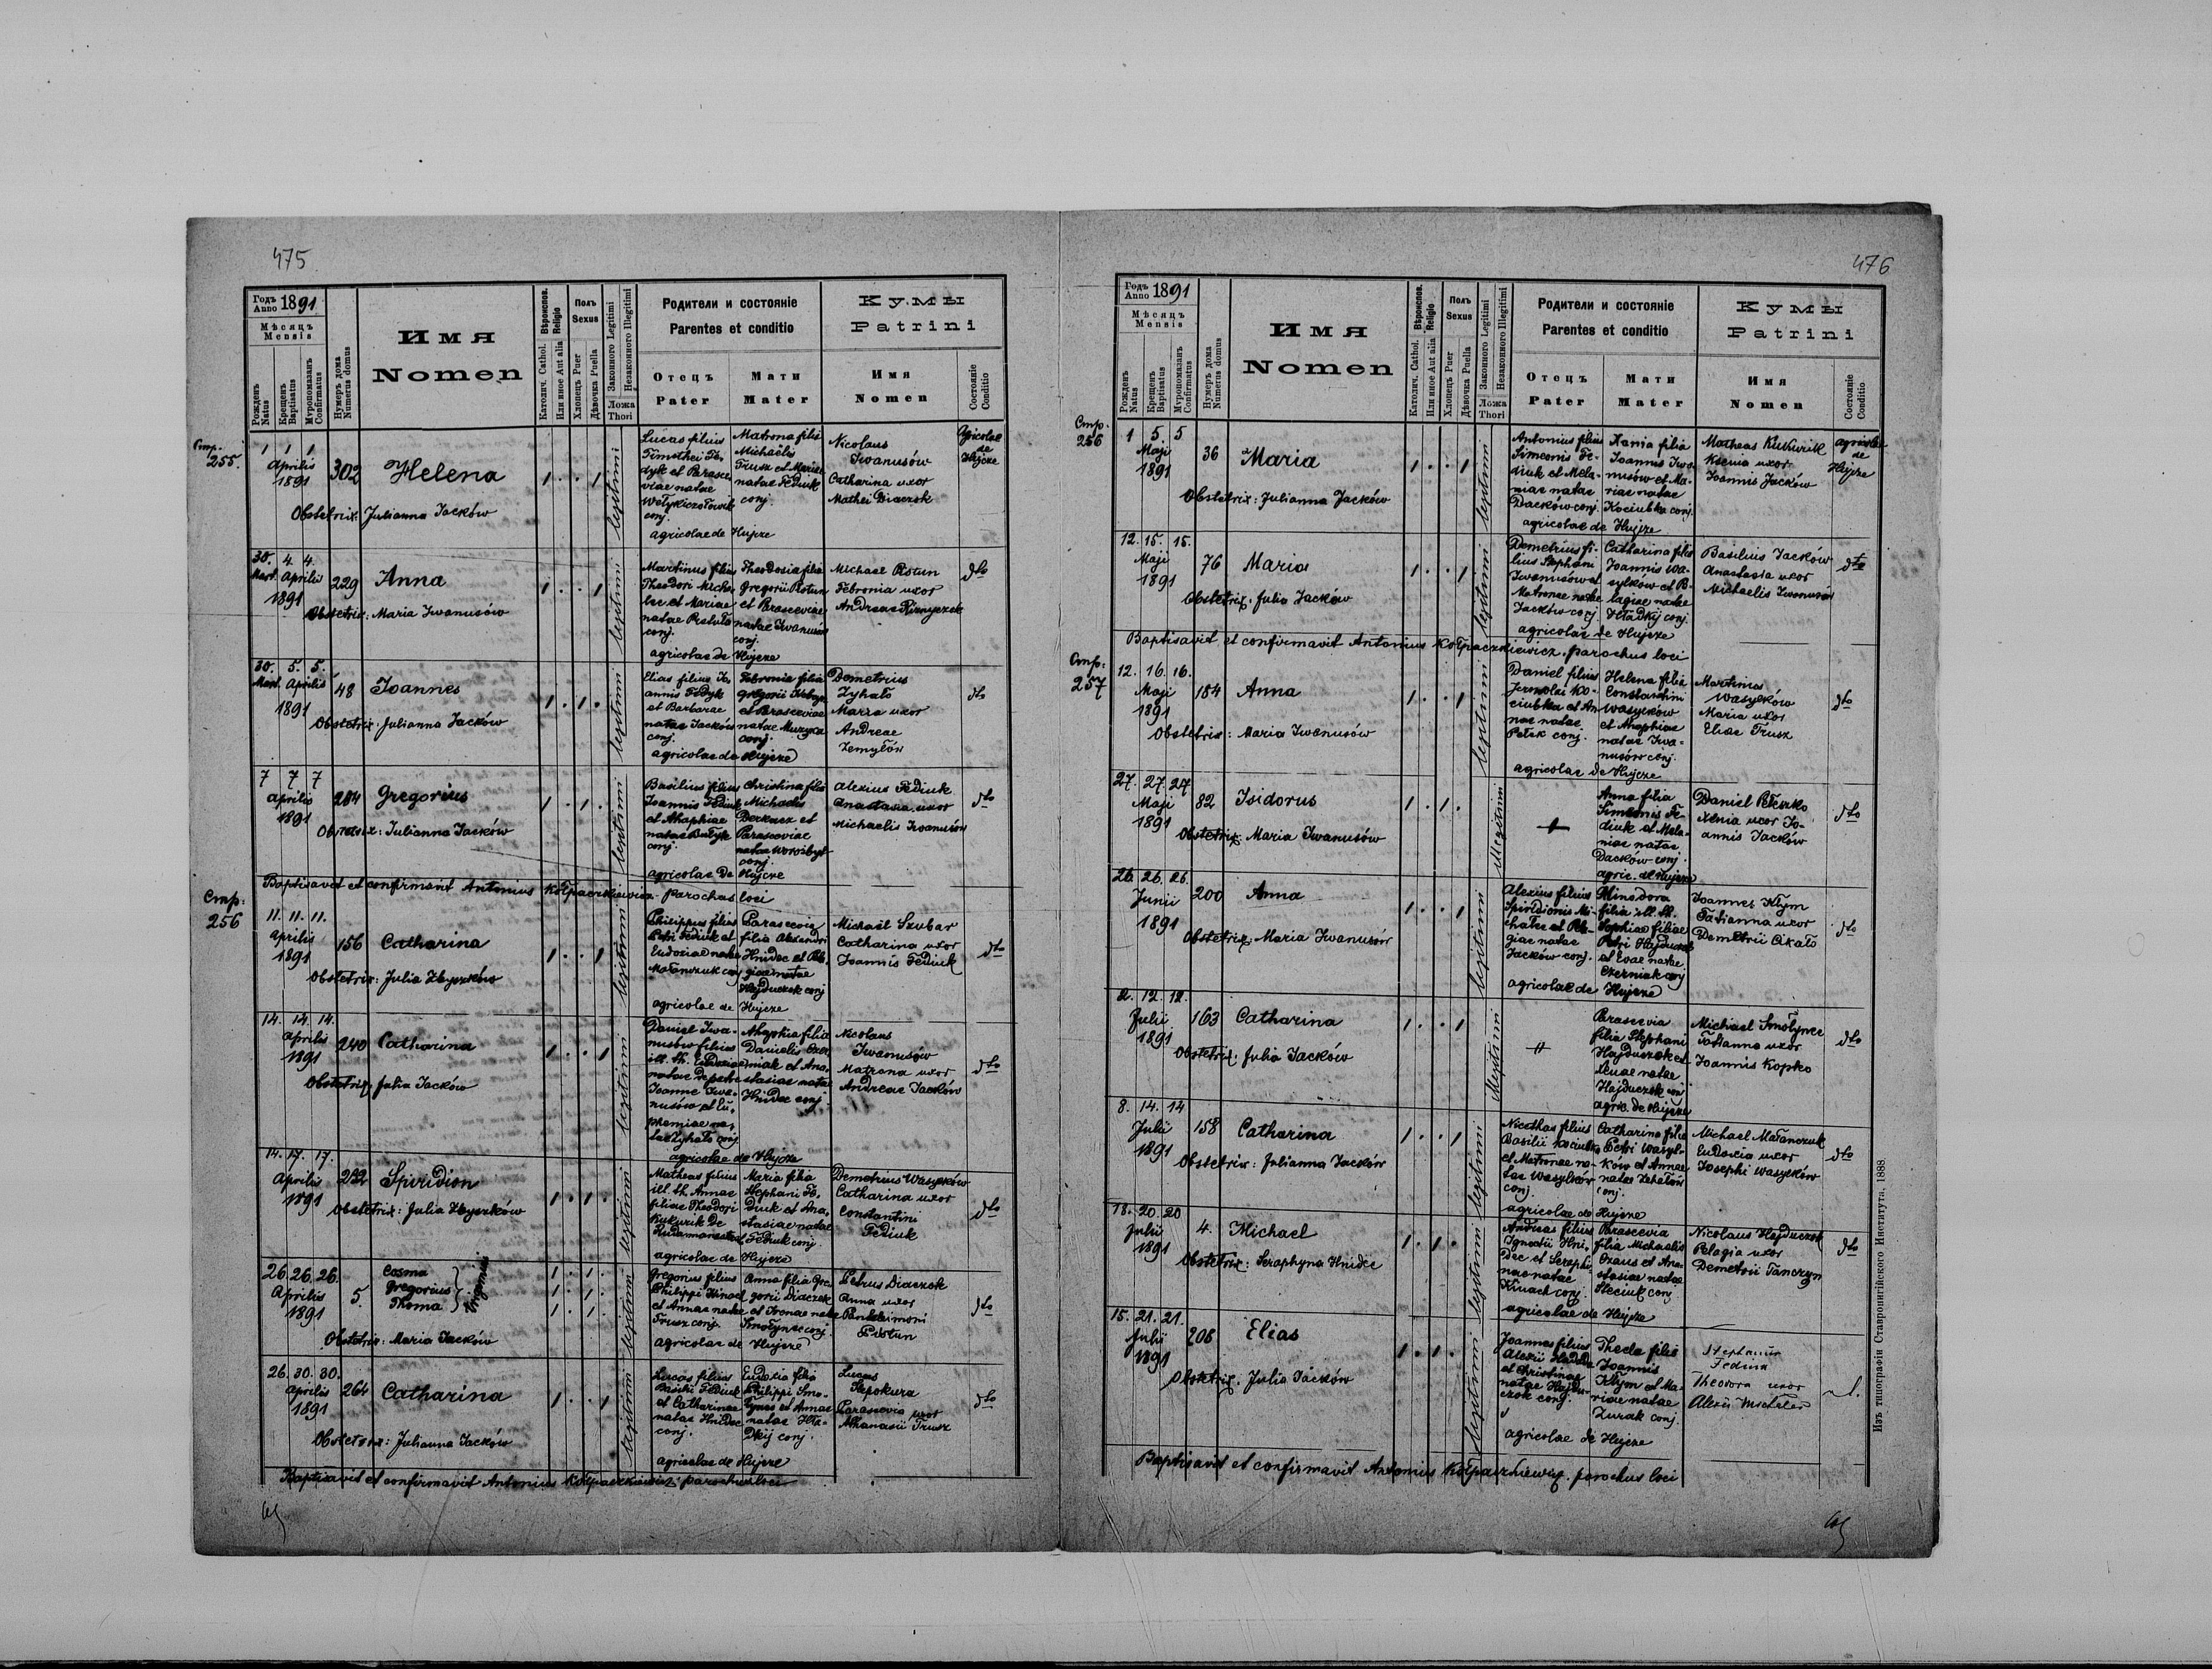 475
Годъ Anno 1891
Мѣсяцъ
Mensis
Рожденъ Natus
Крещенъ Baptisatus
Мѵропомазанъ Confirmatus
Нумеръ дома Numerus domus
Имя
Nomen
Вѣроисповѣд. Religio
Католич. Cathol.
Или иное Aut alia
Полъ
Sexus
Хлопецъ Puer
Дѣвочка Puella
Законного Legitimi
Незаконного Illegitimi
Ложа
Thori
Родители и состояніе
Parentes et conditio
Отецъ
Pater
Мати
Mater
Кумы
Patrini
Имя
Nomen
Состояніе
Conditio
Стр. 255.
1 1 1
Aprilis
1891
302
Helena
Obstetrix: Julianna Jacków
legitimi
Lucas filius
Timothei Fe-
dyk et Parasce-
viae natae
conj.
Matrona filia
Michaëlis
Trusz et Mariae
natae Fediuk
conj.
agricolae de Hujcze
Nicolaus
Iwanusów
Catharina uxor
Mathei Diaczok
Agricolae
de
Hujcze
30. 4. 4.
Mart. Aprilis
1891
229
Anna
Obstetrix: Maria Iwanusów
legitimi
Martinus filius
Theodori Micha-
lec et Mariae
natae
conj.
Theodosia filia
Gregorii Rotun
et Parasceviae
natae Iwanusów
conj.
agricolae de Hujcze
Michael Rotun
Febronia uxor
Andreae
dto
30. 5. 5.
Mart. Aprilis
1891
48
Joannes
Obstetrix: Julianna Jacków
legitimi
Elias filius Jo-
annis Fedyk
et Barbarae
natae Jacków
conj.
Febronia filia
Gregorii
et Parasceviae
natae Muzyka
conj.
agricolae de Hujcze
Demetrius
Zyhało
Maria uxor
Andreae
Zemylów
dto
7 7 7
Aprilis
1891
204
Gregorius
Obstetrix: Julianna Jacków
legitimi
Basilius filius
Joannis Fediuk
et Ahaphiae
natae
conj.
Christina filia
Michaelis
Derkacz et
Parasceviae
natae Worożbyt
conj.
agricolae de Hujcze
Alexius Fediuk
Anastasia uxor
Michaelis Iwanusów
dto
Baptisavit et confirmavit Antonius Kołpaczkiewicz parochus loci
Стр: 256
11. 11. 11.
Aprilis
1891
156
Catharina
Obstetrix: Julia
legitimi
Philippus filius
Petri Fediuk et
Eudoxiae natae
Małanczuk conj
Parascevia
filia Alexandri
Hnidec et Pela-
giae natae
Hajduczok conj
agricolae de Hujcze
Michaël Szubar
Catharina uxor
Joannis Fediuk
dto
14. 14. 14.
Aprilis
1891
240
Catharina
Obstetrix: Julia Jacków
legitimi
Daniel Iwa-
nusów filius
ill. th. Eudoxiae
natae de patre
Joanne Iwa-
nusów et Eu-
phemiae na-
tae Zyhało conj
Ahaphia filia
Danielis Czer-
niak et Ana-
stasiae natae
Hnidec conj
agricolae de Hujcze
Nicolaus
Iwanusów
Matrona uxor
Andreae Jacków
dto
14. 17. 17.
Aprilis
1891
282
Spiridion
Obstetrix: Julia
legitimi
Matheas filius
ill. th. Annae
filiae Theodori
Kukurik de
Maria filia
Stephani Fe-
diuk et Ana-
stasiae natae
Fediuk conj
agricolae de Hujcze
Demetrius Wasylków
Catharina uxor
Constantini
Fediuk
dto
26. 26. 26.
Aprilis
1891
5.
Cosma
Gregorius
Thoma
trigemini
Obstetrix: Maria Jacków
legitimi
Gregorius filius
Philippi Kinach
et Annae natae
Trusz conj.
Anna filia Gre-
gorii Diaczok
et Irenae natae
Smołyneć conj.
agricolae de Hujcze
Petrus Diaczok
Anna uxor
Panteleimoni
Rotun
dto
26. 30. 30.
Aprilis
1891
264
Catharina
Obstetrix: Julianna Jacków
legitimi
Lucas filius
Basilii Fediuk
et Catharinae
natae Hnidec
conj.
Eudoxia filia
Philippi Smo-
łynec et Annae
natae Hła-
dkij conj.
agricolae de Hujcze
Lucas
Szpokura
Parascevia uxor
Athanasii Trusz
dto
Baptisavit et confirmavit Antonius Kołpaczkiewicz parochus loci
476
Годъ Anno 1891
Мѣсяцъ
Mensis
Рожденъ Natus
Крещенъ Baptisatus
Мѵропомазанъ Confirmatus
Нумеръ дома Numerus domus
Имя
Nomen
Вѣроисповѣд. Religio
Католич. Cathol.
Или иное Aut alia
Полъ
Sexus
Хлопецъ Puer
Дѣвочка Puella
Законного Legitimi
Незаконного Illegitimi
Ложа
Thori
Родители и состояніе
Parentes et conditio
Отецъ
Pater
Мати
Mater
Кумы
Patrini
Имя
Nomen
Состояніе
Conditio
Стр. 256
1 5. 5
Maji
1891
36
Maria
Obstetrix: Julianna Jacków
legitimi
Antonius filius
Simeonis Fe-
diuk et Mela-
niae natae
Dacków conj.
Xania filia
Joannis Iwa-
nusów et Ma-
riae natae
Kociubka conj.
agricolae de Hujcze
Matheas Kukurik
Ksenia uxor
Joannis Jacków
agricolae
de
Hujcze
12. 15. 15.
Maji
1891
76
Maria
Obstetrix: Julia Jacków
legitimi
Demetrius fi-
lius Stephani
Iwanusów et
Matronae natae
Jacków conj
Catharina filia
Joannis Wa-
sylków et Pe-
lagiae natae
Hładkij conj.
agricolae de Hujcze
Basilius Jacków
Anastasia uxor
Michaelis Iwanusów
dto
Baptisavit et confirmavit Antonius Kołpaczkiewicz parochus loci
Стр: 257
12. 16. 16.
Maji
1891
184
Anna
Obstetrix: Maria Iwanusów
legitimi
Daniel filius
Jermolai Ko-
ciubka et An-
nae natae
Petrk conj.
Helena filia
Constantini
Wasylków
et Ahaphiae
natae Iwa-
nusów conj.
agricolae de Hujcze
Martinus
Wasylków
Maria uxor
Eliae Trusz
dto
27. 27. 27
Maji
1891
82
Isidorus
Obstetrix Maria Iwanusów
illegitimi
Anna filia
Simeonis Fe-
diuk et Mela-
niae natae
Dacków conj.
agric. de Hujcze
Daniel Peleszko
Xenia uxor Jo-
annis Jacków
dto
26. 26. 26.
Junii
1891
200
Anna
Obstetrix: Maria Iwanusów
legitimi
Alexius filius
Spiridionis Mi-
chalec et Pela-
giae natae
Jacków conj.
Minodora
filia ill. th.
Sophiae filiae
Petri Hajduczok
et Evae natae
Czerniak conj
agricolae de Hujcze
Joannes Kłym
Tatianna uxor
Demetrii Cikało
dto
2. 12. 12.
Julii
1891
163
Catharina
Obstetrix: Julia Jacków
illegitimi
Parascevia
filia Stephani
Hajduczok et
natae
Hajduczok conj
agric. de Hujcze
Michael Smołynec
Tatianna uxor
Joannis Kopko
dto
8. 14. 14
Julii
1891
158
Catharina
Obstetrix: Julianna Jacków
legitimi
Nicethas filius
Basilii Kociubka
et Matronae na-
tae Wasylków
conj.
Catharina filia
Petri Wasyl-
ków et Annae
natae
conj.
agricolae de Hujcze
Michael Małanczuk
Eudoxia uxor
Josephi Wasylków
dto
18. 20. 20
Julii
1891
4.
Michael
Obstetrix: Seraphyna Hnidec
legitimi
Andreas filius
Ignatii Hni-
dec et Seraphi-
nae natae
Kinach conj.
Parascevia
filia Michaelis
Ozaus et Ana-
stasiae natae
Steciuk conj
agricolae de Hujcze
Nicolaus Hajduczok
Pelagia uxor
Demetrii Tanczyn
dto
15. 21. 21.
Julii
1891
208
Elias
Obstetrix. Julia Jacków
legitimi
Joannes filius
Alexii
et Christinae
natae Hajdu-
czok conj.
Thecla filia
Joannis
Kłym et Ma-
riae natae
Żurak conj.
agricolae de Hujcze
Stephanus
Fediuk
Theodora uxor
Alexii Michalec
Baptisavit et confirmavit Antonius Kołpaczkiewicz. parochus loci
Изъ типографіи Ставропигійского Института, 1888.